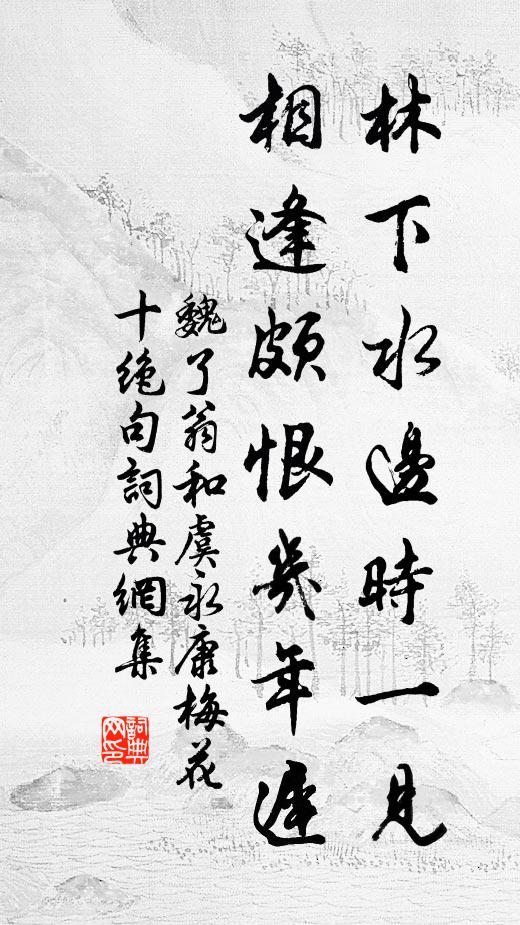 林下水邊時一見
相逢頗恨幾年遲
魏了翁和虞永康梅花
十絕句詞典網集
詞典網印